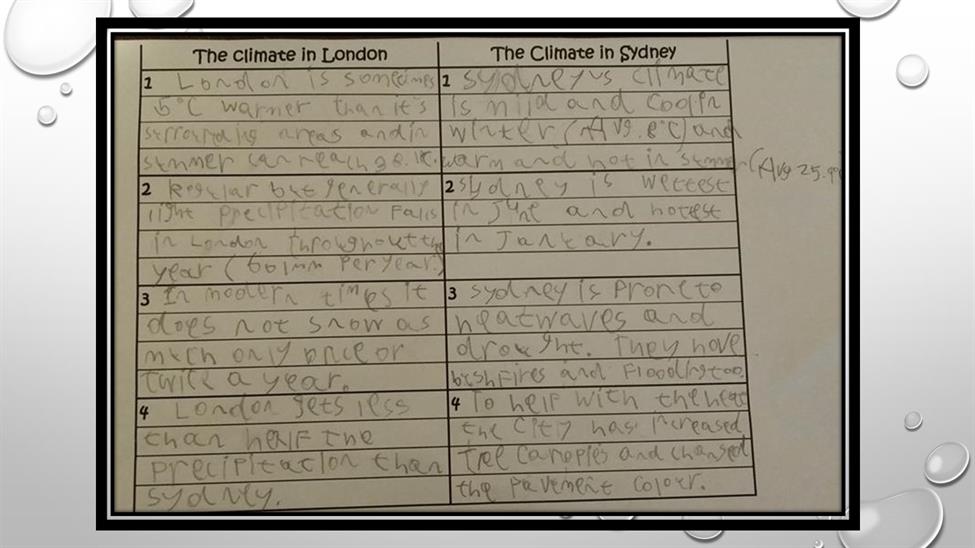 The climate in London
1 London is sometimes
5°C warmer than it's
surrounding areas and in
summer can reach
2 Regular but generally
light precipitation falls
in London throughout the
year (601mm per year.)
3 In modern times it
does not snow as
much only once or
twice a year.
4 London gets less
than helf the
precipitation than
sydney.
The Climate in Sydney
1 sydneys climate
is mild and cool in
winter (Avg. 8°C) and
warm and hot in summer (Avg 25.
2 sydney is wettest
in June and hottest
in January.
3 sydney is prone to
heatwaves and
drought. They have
bushfires and flooding too.
4 To help with the heat
the city has increased
tree canopies and changed
the pavement colour.